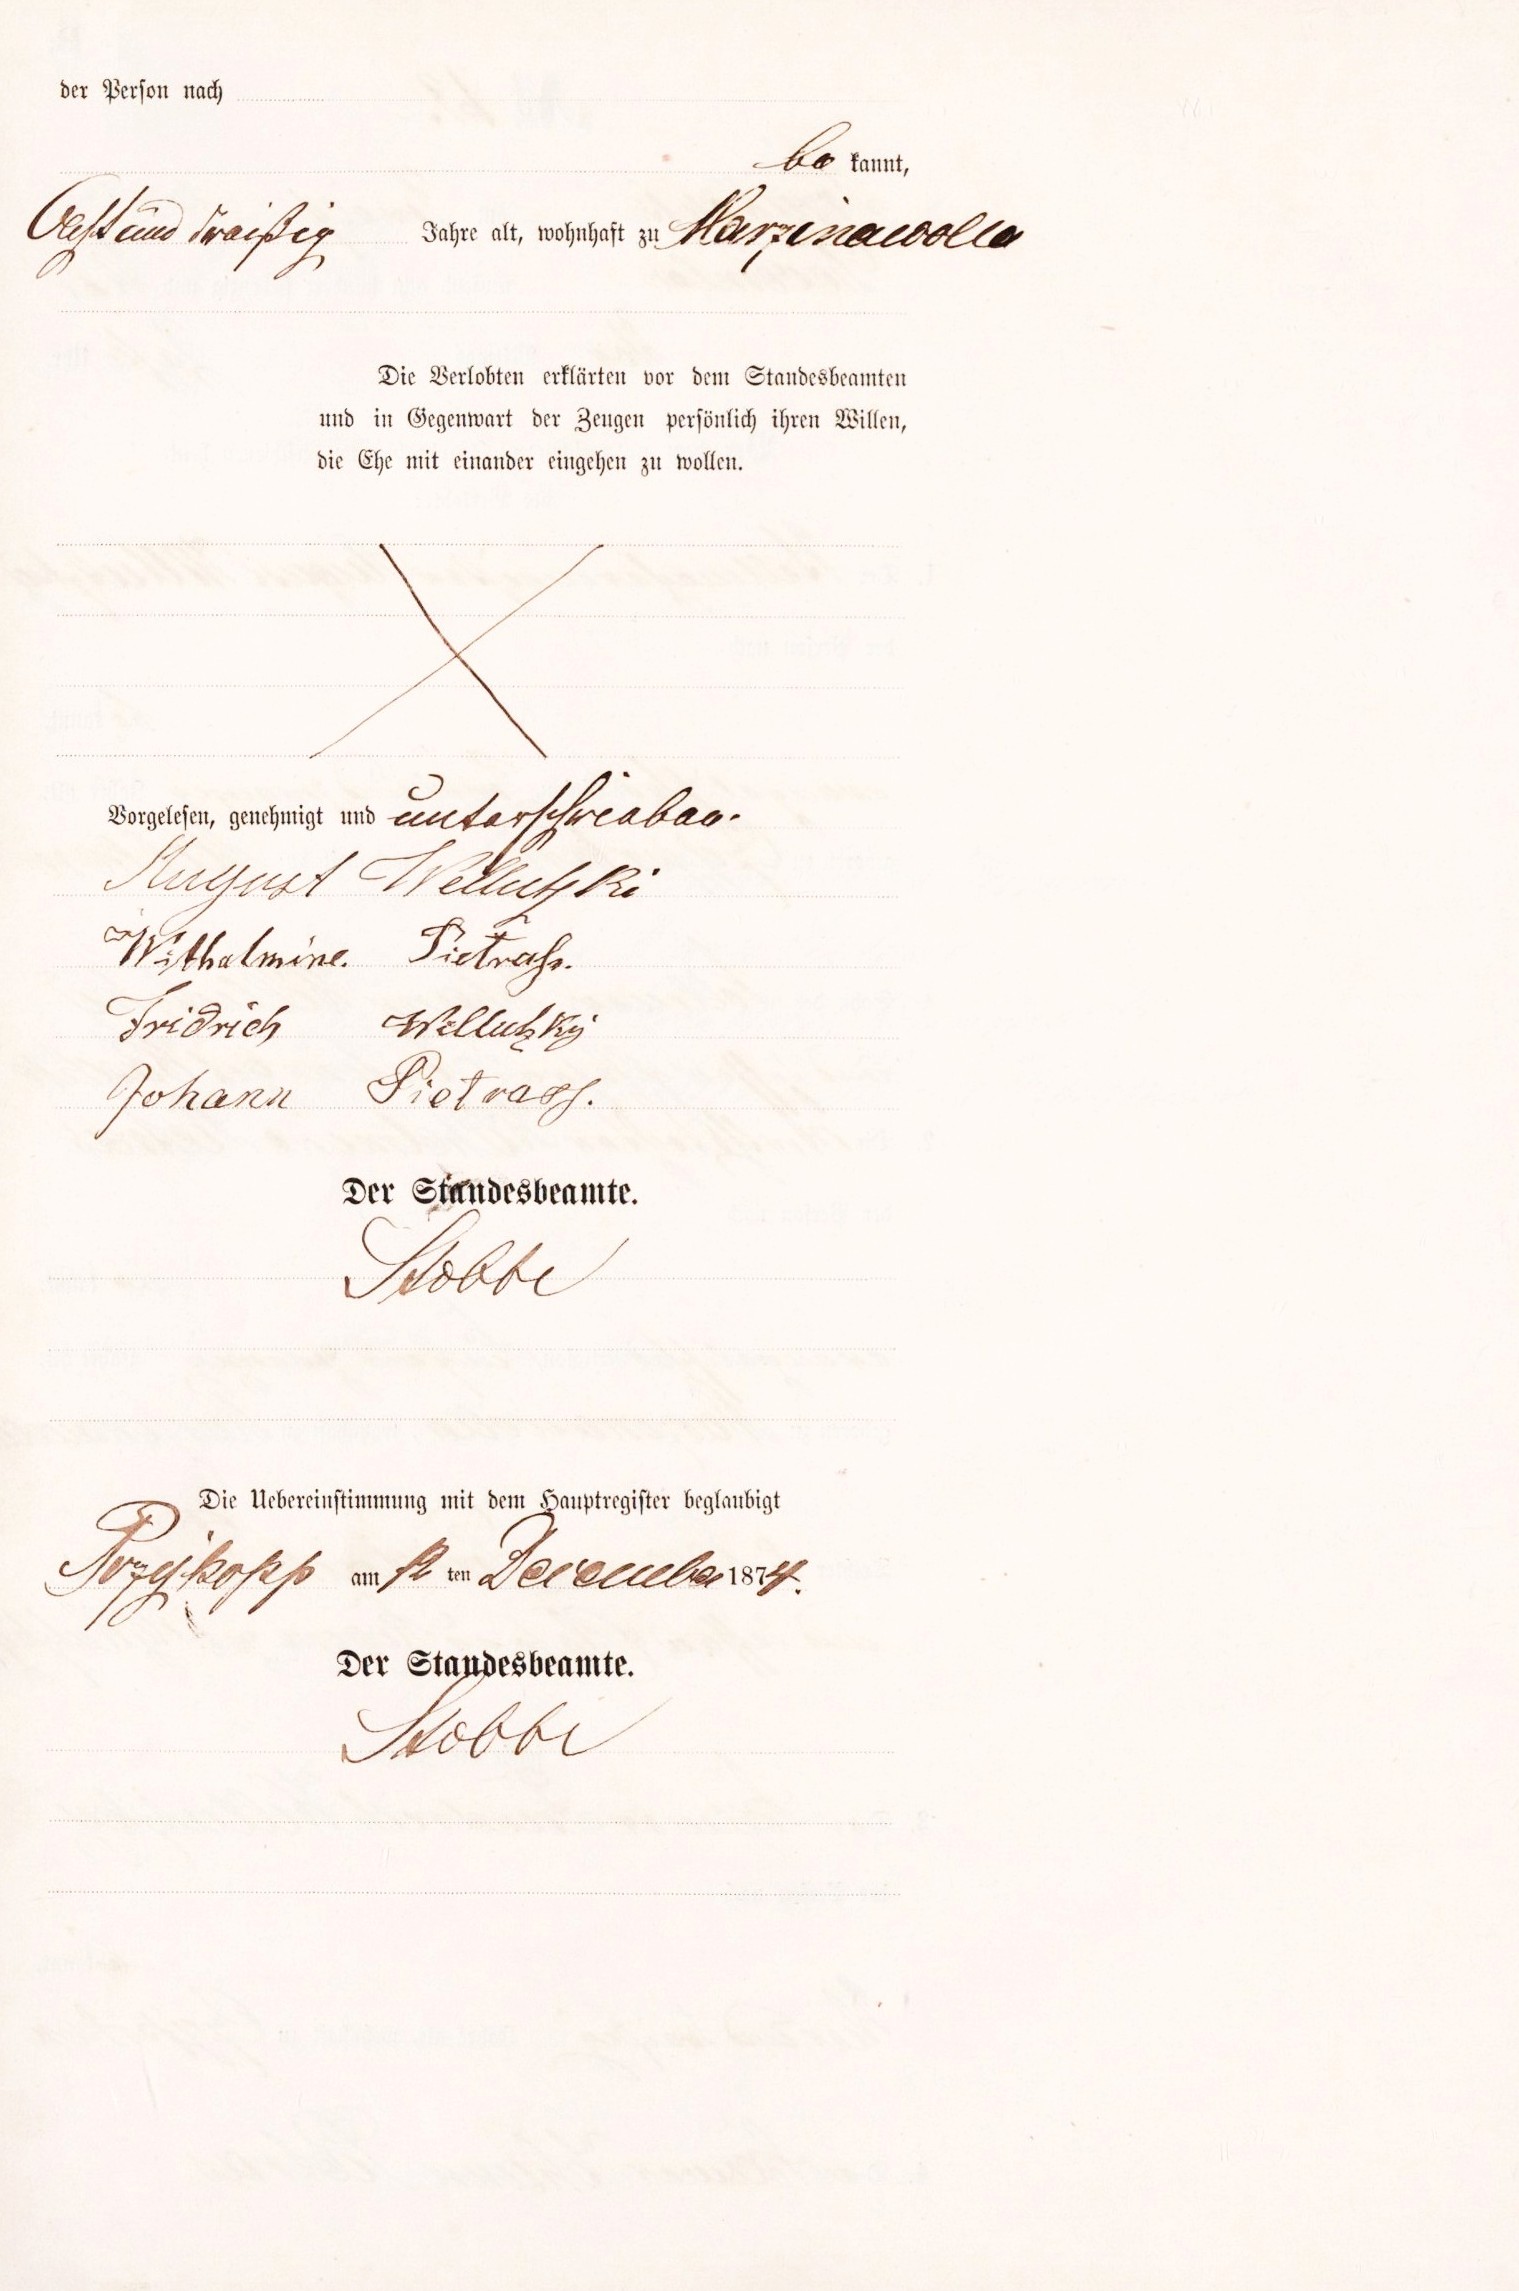 der Person nach
be kannt,
Acht und dreißig Jahre alt, wohnhaft zu Marzinawolla
Die Verlobten erklärten vor dem Standesbeamten
und in Gegenwart der Zeugen persönlich ihren Willen,
die Ehe mit einander eingehen zu wollen.
Vorgelesen, genehmigt und unterschrieben.
August Wellutzki
Wilhelmine. Pietrass.
Fridrich Wellutzky
Johann Pietrass.
Der Standesbeamte.
Stobbe
Die Uebereinstimmung mit dem Hauptregister beglaubigt
Przykopp am 12 ten December 1874.
Der Standesbeamte.
Stobbe